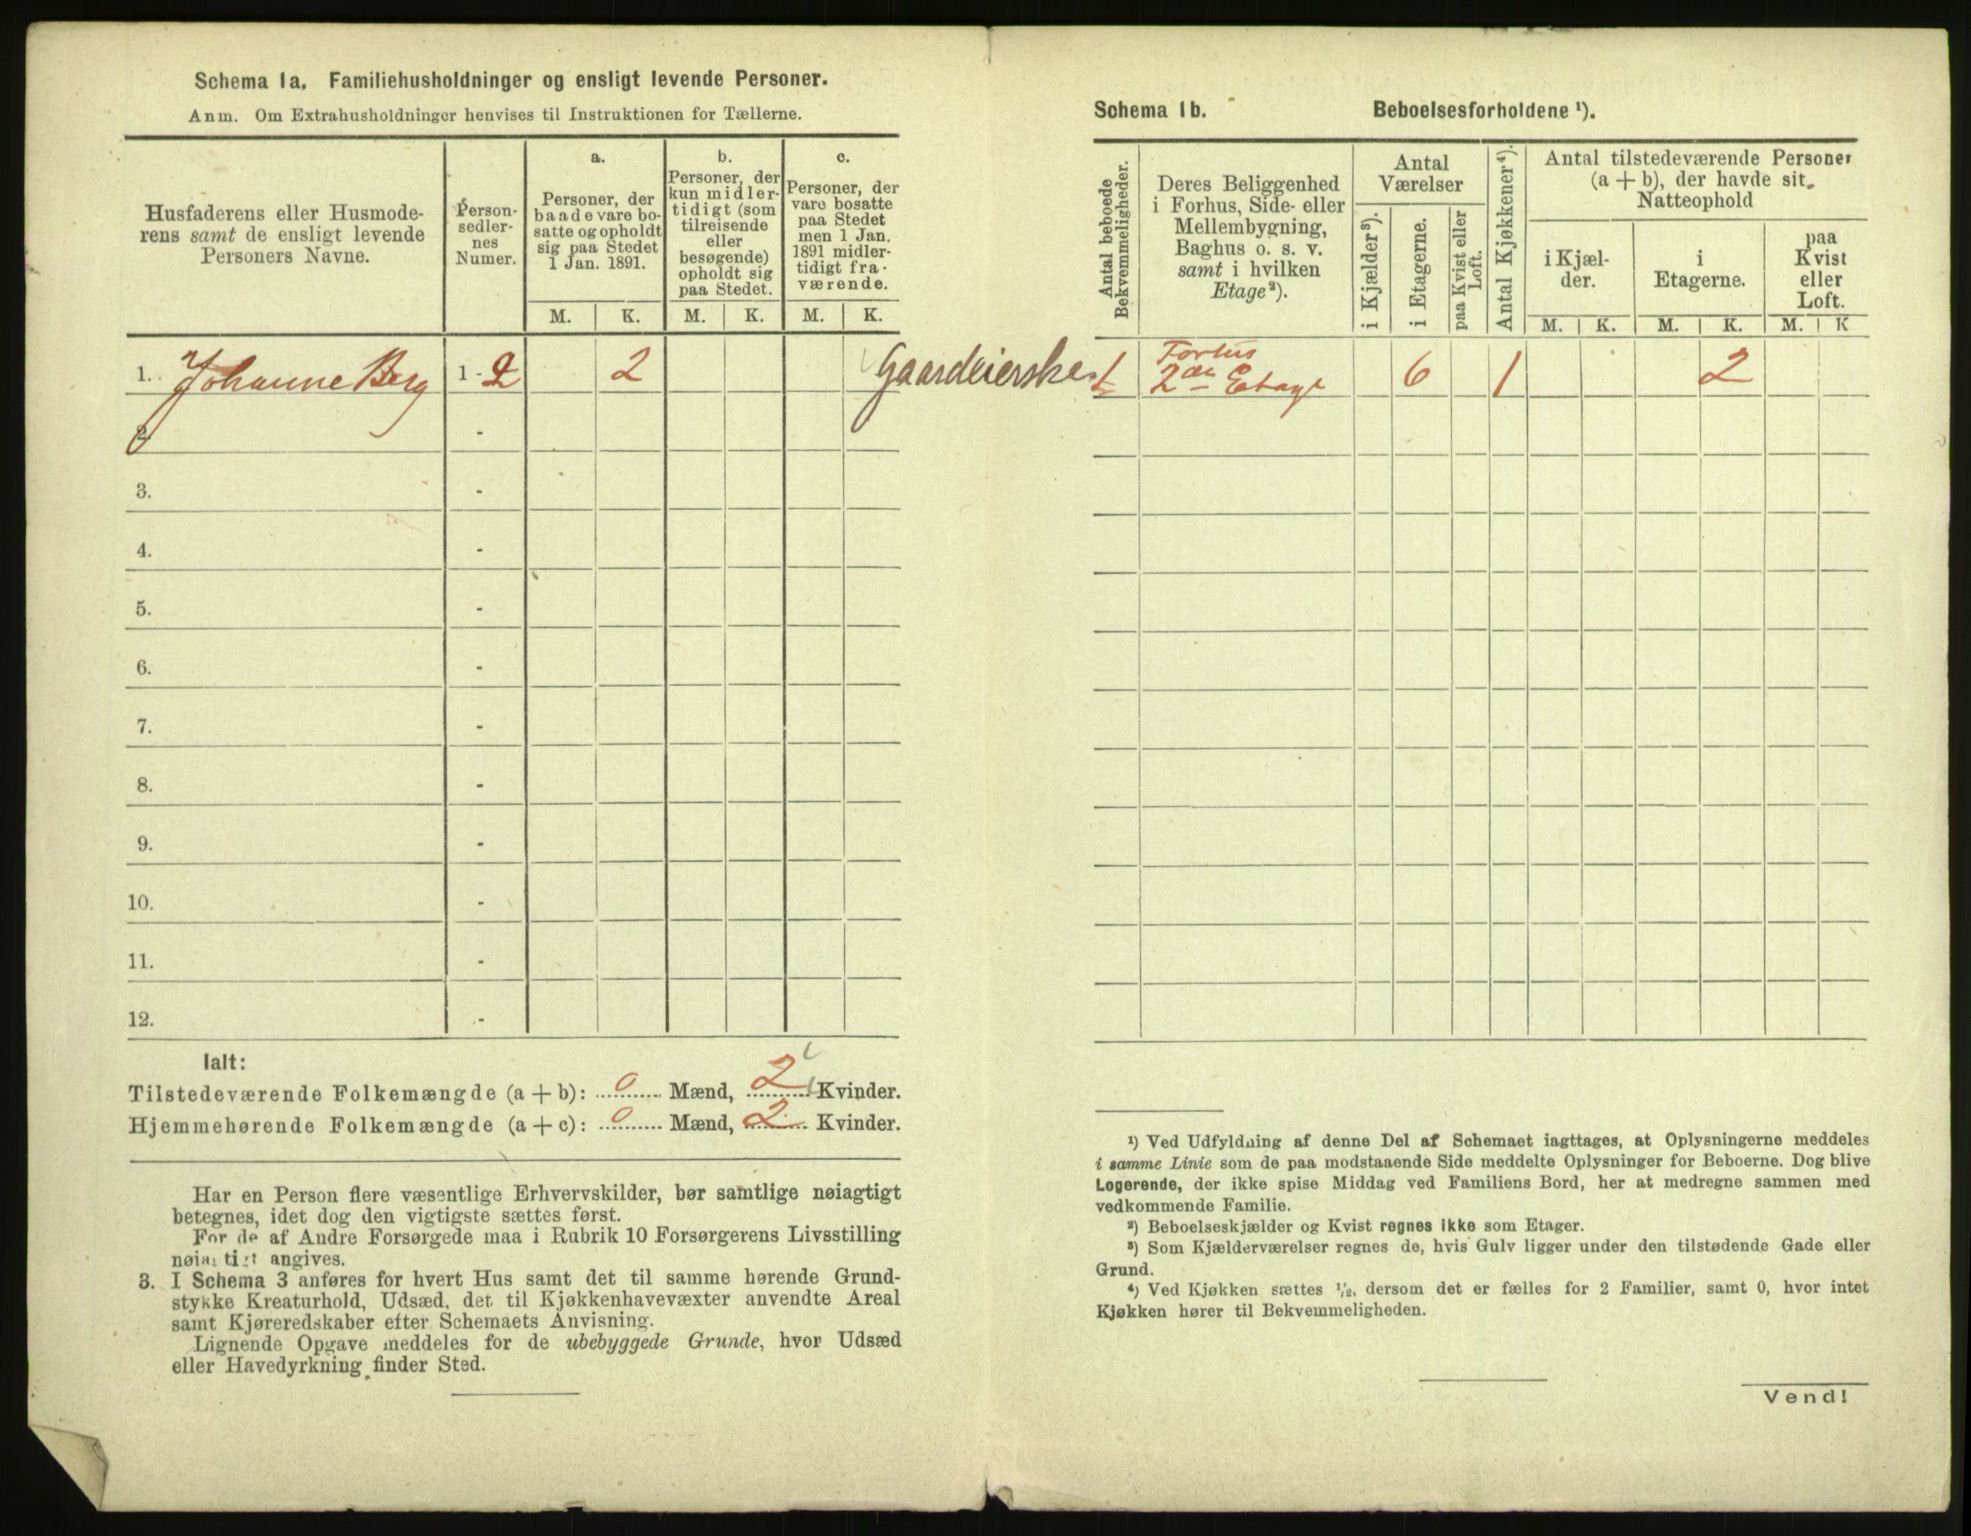 Schema 1a. Familiehusholdninger og ensligt levende Personer.
Anm. Om Extrahusholdninger henvises til Instruktionen for Tællerne.
Husfaderens eller Husmode-
rens samt de ensligt levende
Personers Navne.
Person-
sedler-
nes
Numer.
a.
Personer, der
baade vare bo-
satte og opholdt
sig paa Stedet
1 Jan. 1891.
b.
Personer, der
kun midler-
tidigt (som
tilreisende
eller
besøgende)
opholdt sig
paa Stedet.
c.
Personer, der
vare bosatte
paa Stedet
men 1 Jan.
1891 midler-
tidigt fra-
værende.
M. K. M. K. M. K.
1. Johanne Berg 1 - 2 2 Gaardeierske
2. -
3. -
4. -
5. -
6. -
7. -
8. -
9. -
10. -
11. -
12. -
Ialt:
Tilstedeværende Folkemængde (a + b): 0 Mænd, 2 Kvinder.
Hjemmehørende Folkemængde (a + c): 0 Mænd, 2 Kvinder.
Har en Person flere væsentlige Erhvervskilder, bør samtlige nøiagtigt
betegnes, idet dog den vigtigste sættes først.
For de af Andre Forsørgede maa i Rubrik 10 Forsørgerens Livsstilling
nøiagtigt angives.
3. I Schema 3 anføres for hvert Hus samt det til samme hørende Grund-
stykke Kreaturhold, Udsæd, det til Kjøkkenhavevæxter anvendte Areal
samt Kjøreredskaber efter Schemaets Anvisning.
Lignende Opgave meddeles for de ubebyggede Grunde, hvor Udsæd
eller Havedyrkning finder Sted.
Schema 1b. Beboelsesforholdene ¹).
Antal beboede
Bekvemmeligheder.
Deres Beliggenhed
i Forhus, Side- eller
Mellembygning,
Baghus o. s. v.
samt i hvilken
Etage²).
Antal
Værelser
i Kjælder³).
i Etagerne.
paa Kvist eller
Loft.
Antal Kjøkkener⁴).
Antal tilstedeværende Personer
(a + b), der havde sit
Natteophold
i Kjæl-
der.
i
Etagerne.
paa
Kvist
eller
Loft.
M. K. M. K. M. K
1 Forhus
2den Etage 6 1 2
¹) Ved Udfyldning af denne Del af Schemaet iagttages, at Oplysningerne meddeles
i samme Linie som de paa modstaaende Side meddelte Oplysninger for Beboerne. Dog blive
Logerende, der ikke spise Middag ved Familiens Bord, her at medregne sammen med
vedkommende Familie.
²) Beboelseskjælder og Kvist regnes ikke som Etager.
³) Som Kjælderværelser regnes de, hvis Gulv ligger under den tilstødende Gade eller
Grund.
⁴) Ved Kjøkken sættes ½, dersom det er fælles for 2 Familier, samt 0, hvor intet
Kjøkken hører til Bekvemmeligheden.
Vend!